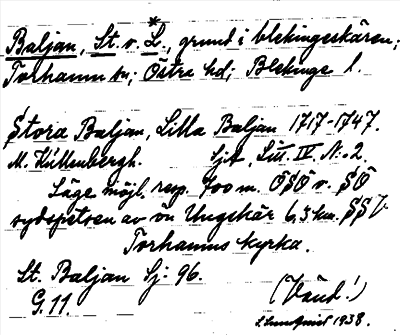 *
Baljan, St. o. L., grund i blekingeskären;
Torhamn sn; Östra hd; Blekinge l.
Stora Baljan, Lilla Baljan 1717-1747.
M. Küllenbergh. Sjk. Lit. IV N:o 2.
Läge möjl. resp. 400 m. OSO o. SO
sydspetsen av ön Ungskär 6,3 km. SSV
Torhamns kyrka.
St. Baljan Sj: 96.
G. 11. (Vänd!)
Lundquist 1938.